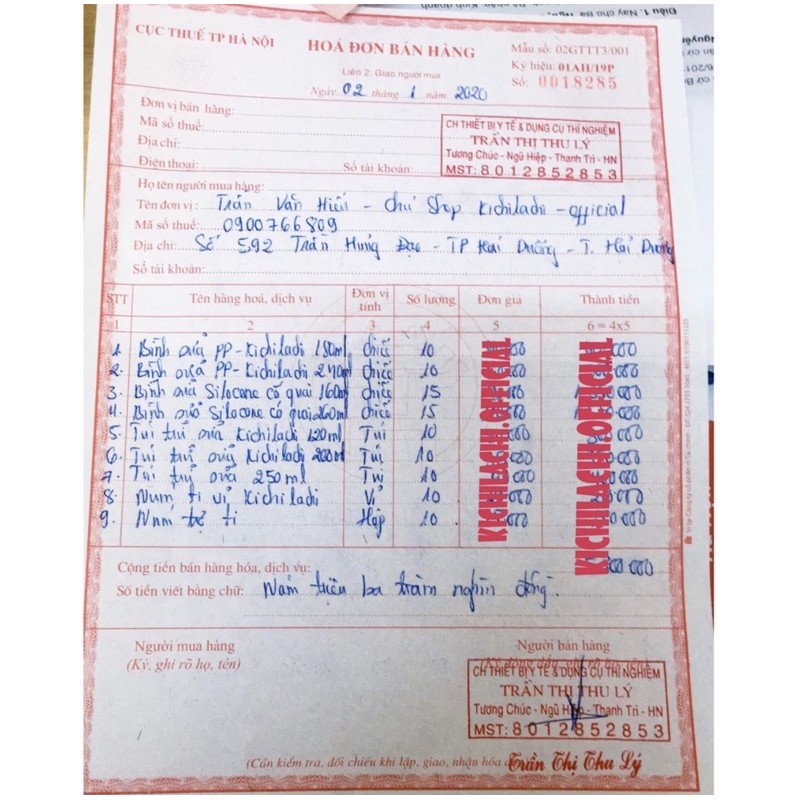 CỤC THUẾ TP HÀ NỘI
HOÁ ĐƠN BÁN HÀNG
Mẫu số: 02GTTT3/001
Liên 2: Giao người mua
Ký hiệu: 01AH/19P
Số: 0018285
Ngày 02 tháng 1 năm 2020
Đơn vị bán hàng:
Mã số thuế:
Địa chỉ:
Điện thoại: Số tài khoản:
CH THIẾT BỊ Y TẾ & DỤNG CỤ THÍ NGHIỆM
TRẦN THỊ THU LÝ
Tương Chúc - Ngũ Hiệp - Thanh Trì - HN
MST: 8012852853
Họ tên người mua hàng:
Tên đơn vị: Trần Văn Hiếu - Chủ Shop Kichilachi - official
Mã số thuế: 0900766809
Địa chỉ: Số 592 Trần Hưng Đạo - TP Hải Dương - T. Hải Dương
Số tài khoản:
STT Tên hàng hoá, dịch vụ Đơn vị tính Số lượng Đơn giá Thành tiền
1 2 3 4 5 6 = 4x5
1. Bình sữa PP - Kichilachi 180ml chiếc 10
2. Bình sữa PP - Kichilachi 240ml chiếc 10
3. Bình sữa Silocone có quai 160ml chiếc 15
4. Bình sữa Silocone có quai 260ml chiếc 15
5. Túi trữ sữa Kichilachi 120ml Túi 10
6. Túi trữ sữa Kichilachi 200ml Túi 10
7. Túi trữ sữa 250ml Túi 10
8. Num ti vỉ Kichilachi Vỉ 10
9. Num ti Hộp 10
KICHILACHI.OFFICIAL
KICHILACHI.OFFICIAL
Cộng tiền bán hàng hóa, dịch vụ:
Số tiền viết bằng chữ: Năm triệu ba trăm nghìn đồng.
Người mua hàng
(Ký, ghi rõ họ, tên)
Người bán hàng
CH THIẾT BỊ Y TẾ & DỤNG CỤ THÍ NGHIỆM
TRẦN THỊ THU LÝ
Tương Chúc - Ngũ Hiệp - Thanh Trì - HN
MST: 8012852853
(Cần kiểm tra, đối chiếu khi lập, giao, nhận hóa
Trần Thị Thu Lý